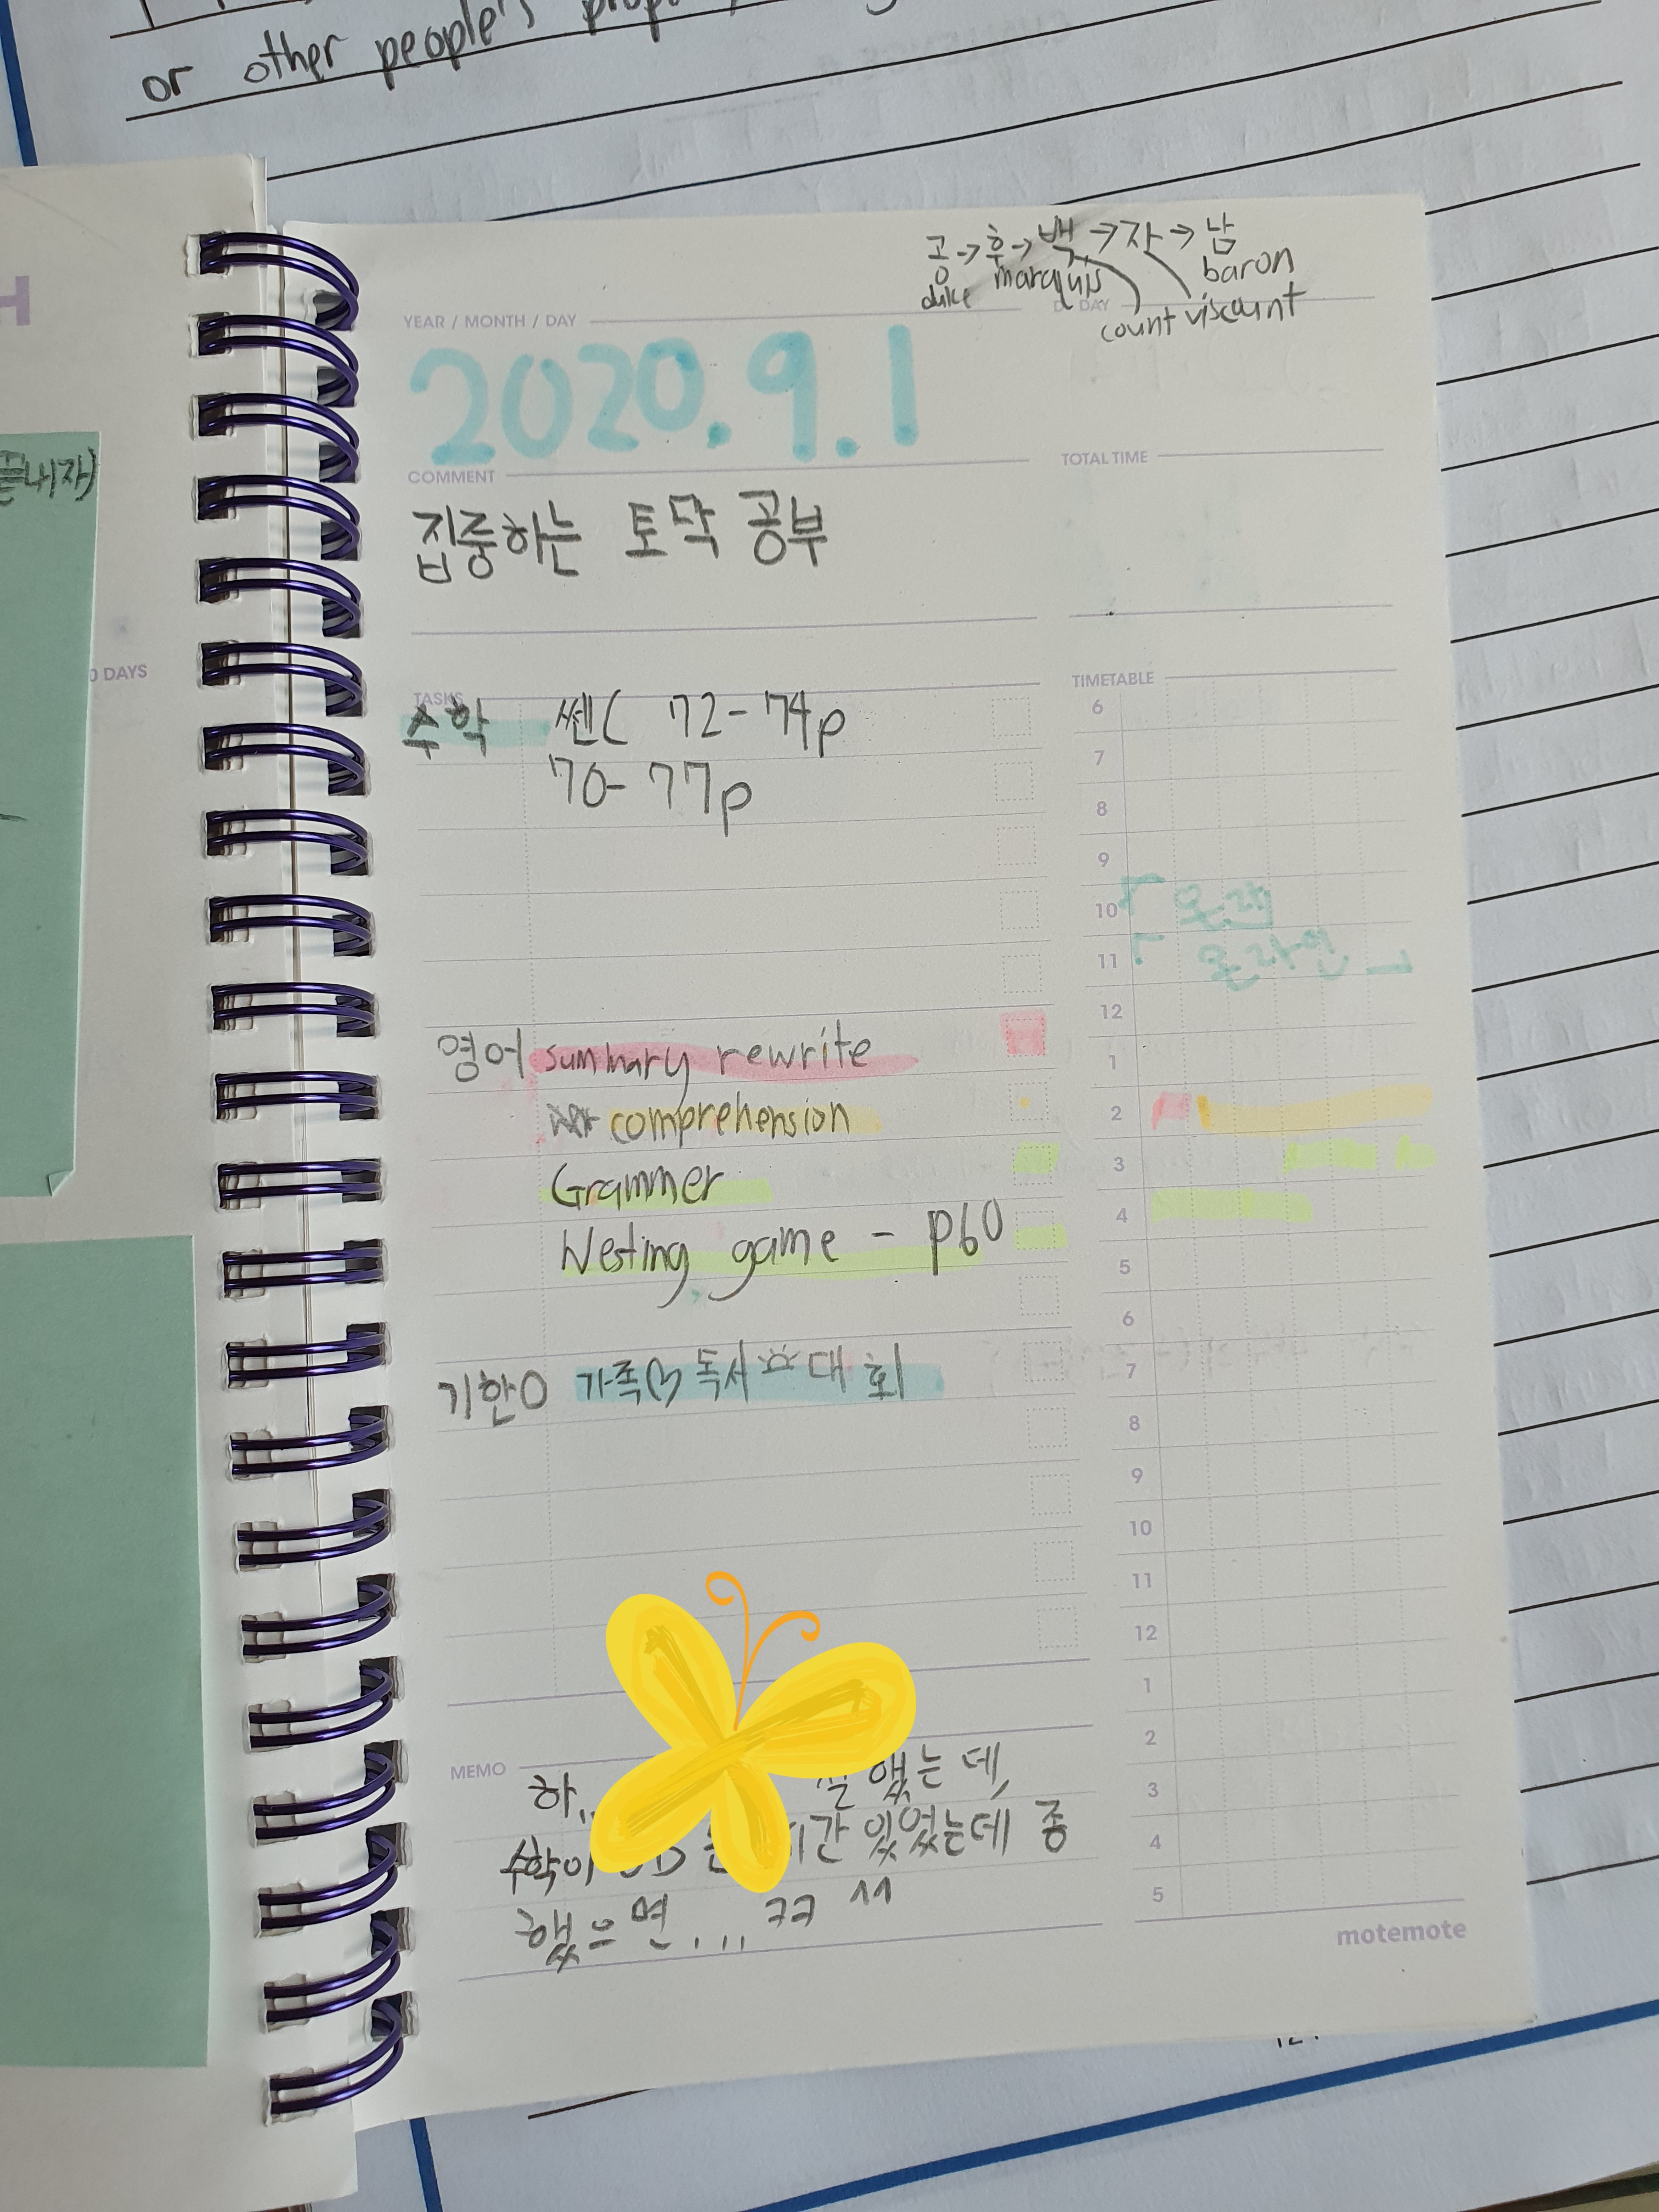 or other people's
공→후→백→자→남
duke marquis baron
count viscount
YEAR / MONTH / DAY
D-DAY
2020.9.1
COMMENT
TOTAL TIME
집중하는 토막 공부
끝내자)
0 DAYS
TASKS
TIMETABLE
수학 쎈C 72-74p
70-77p
6
7
8
9
10
11 온라인
12
영어 summary rewrite
1
comprehension
2
Grammer
3
Westing game - p60
4
5
6
기한O 가족 독서 대회
7
8
9
10
11
12
1
2
MEMO
하.. 잘 했는데,
3
수학이 시간 있었는데 좀
4
했으면... ㅋㅋ ^^
5
motemote